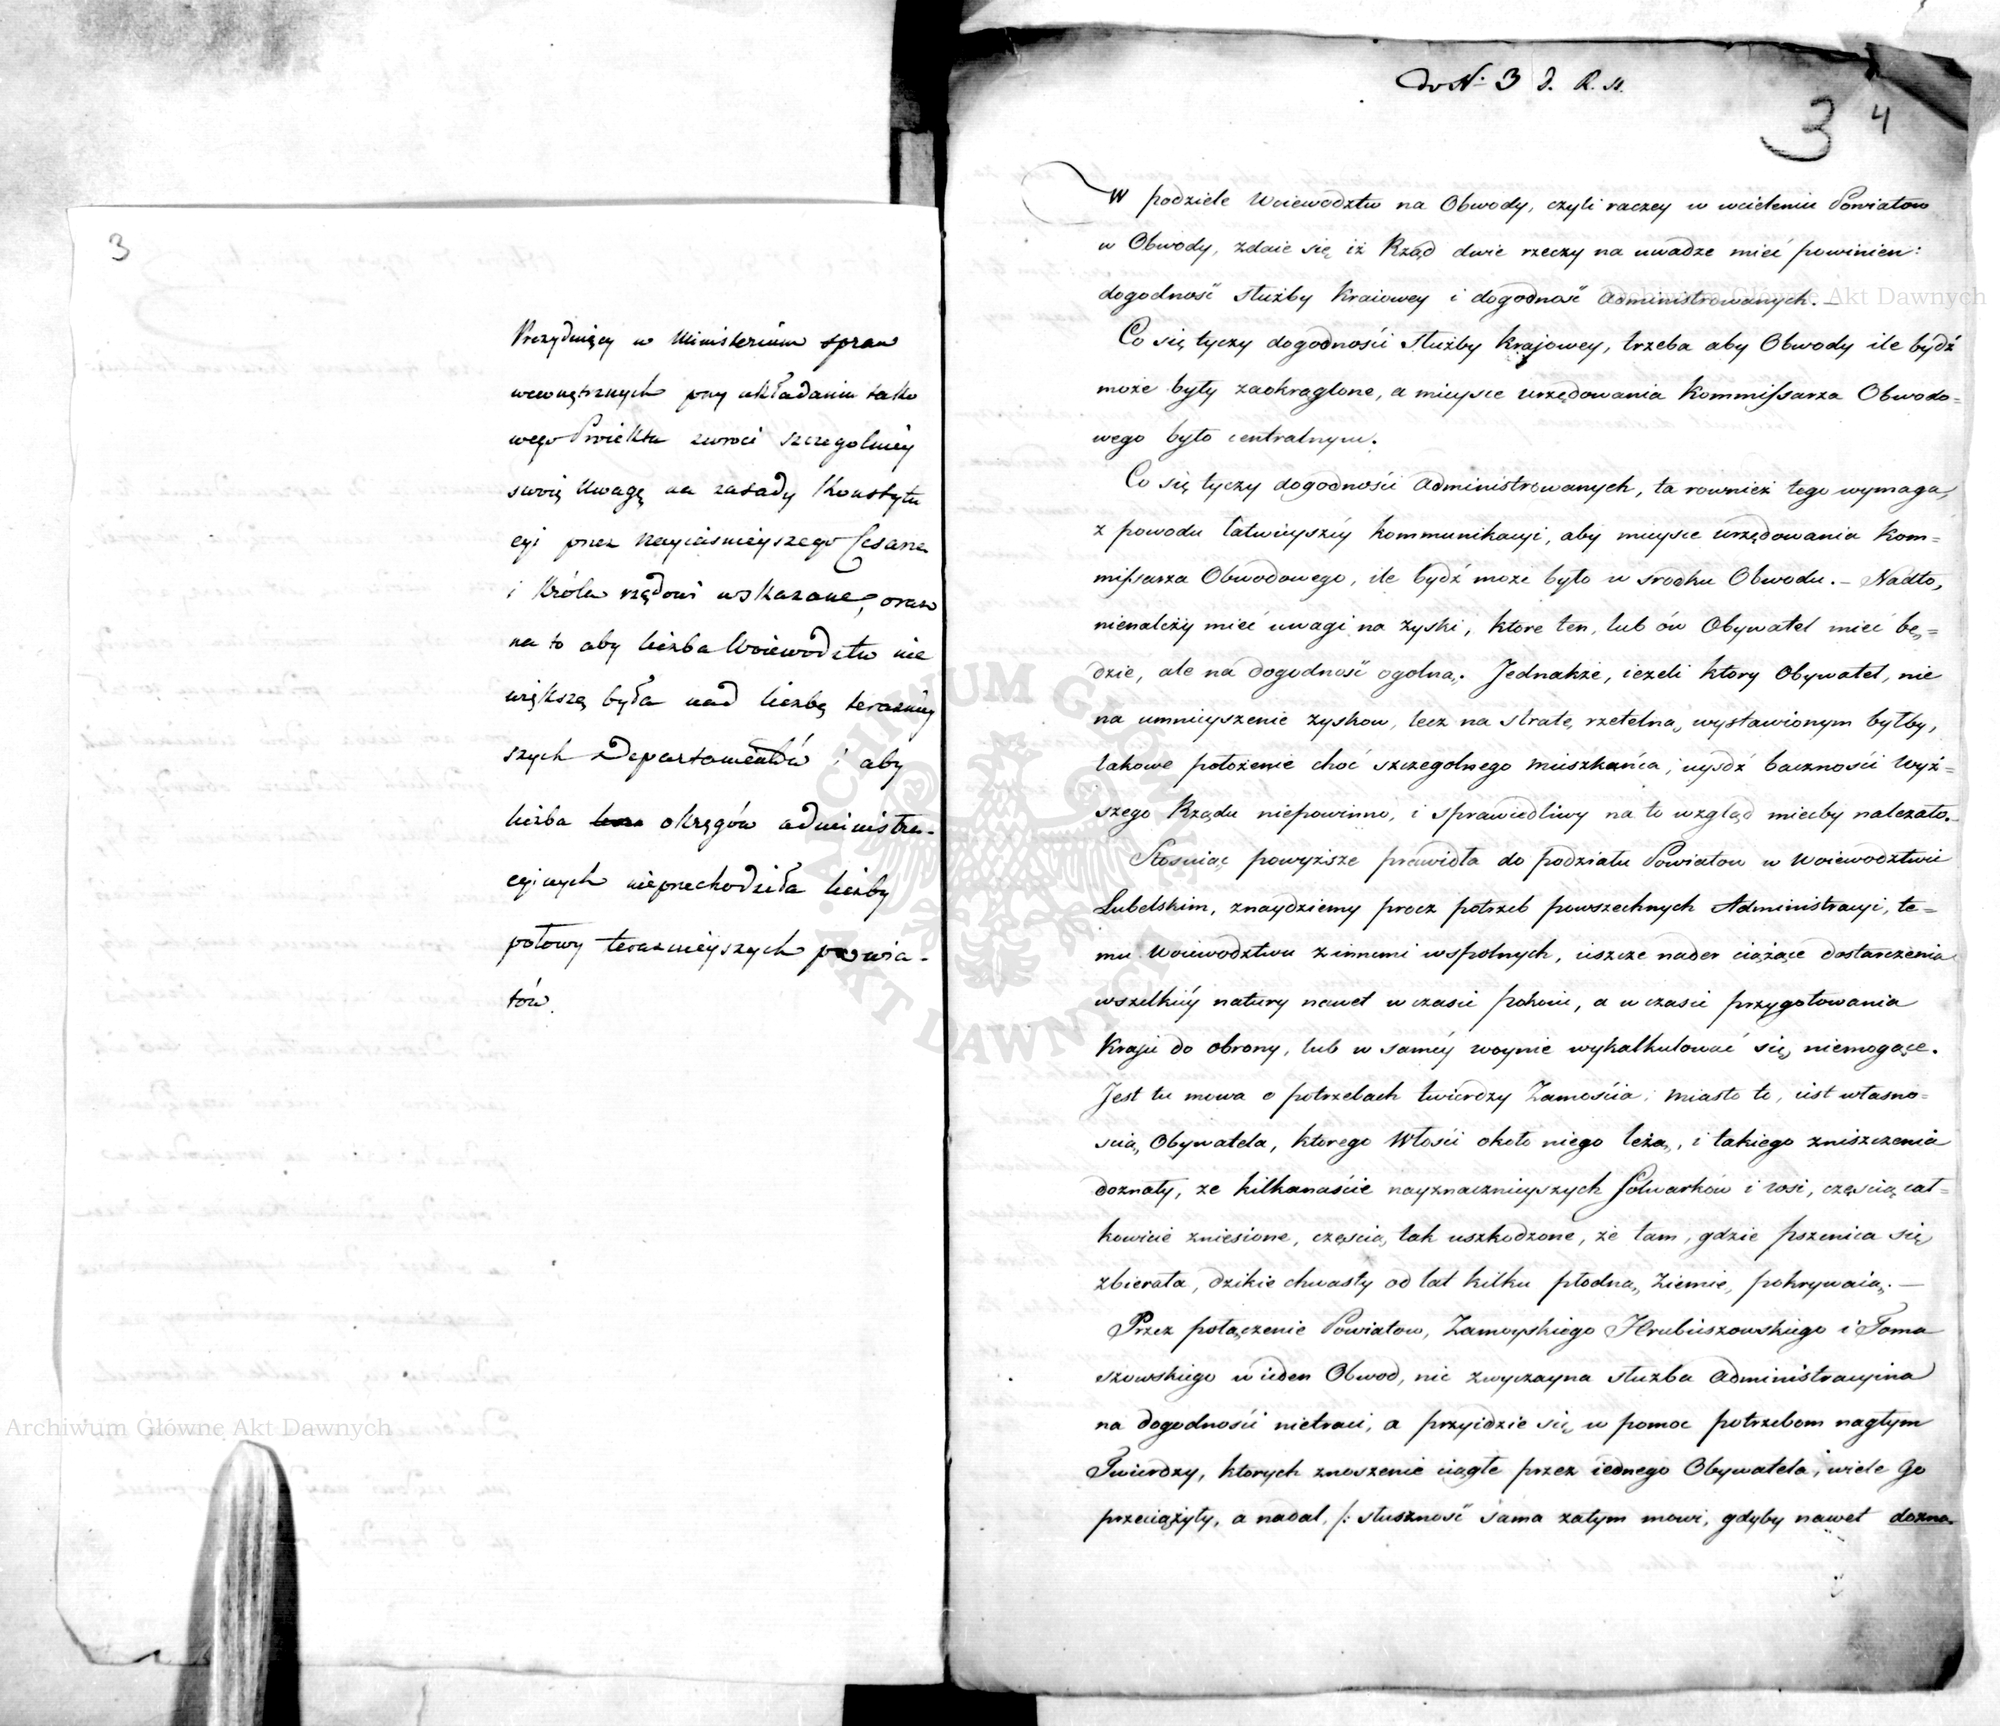 3
Prezyduiący w Ministerium spraw
wewnętrznych przy układaniu tako
wego Proiektu zwroci szczegolniey
swoią Uwagę na zasady Konstytu
cyi przez Nayiaśnieyszego Cesarza
i Króla rządowi wskazane, oraz
na to aby liczba Woiewodztw nie
większą była nad liczbę teraźniey
szych Departamentów i aby
liczba okręgów administra-
cyinych nieprzechodziła liczby
połowy teraznieyszych powia-
tów.
do N. 3 d. R. S.
3 4
W podziele Woiewodztw na Obwody, czyli raczey w wcieleniu Powiatow
w Obwody, zdaie się iż Rząd dwie rzeczy na uwadze mieć powinien:
dogodność służby Kraiowey i dogodność Administrowanych. —
Co się tyczy dogodności służby krajowey, trzeba aby Obwody ile bydź
może były zaokrąglone, a mieysce urzędowania Kommissarza Obwodo=
wego było centralnym.
Co się tyczy dogodności Administrowanych, ta rownież tego wymaga,
z powodu łatwieyszéy kommunikacyi, aby mieysce urzędowania Kom=
missarza Obwodowego, ile bydź może było w srodku Obwodu. — Nadto,
nienależy mieć uwagi na zyski, ktore ten, lub ów Obywatel mieć bę=
dzie, ale na dogodność ogolną. Jednakże, ieżeli ktory Obywatel, nie
na umnieyszenie zyskow, lecz na stratę rzetelną, wystawionym byłby,
takowe położenie choć szczegolnego Mieszkańca, uysdź baczności Wyż=
szego Rządu niepowinno, i sprawiedliwy na to wzgląd miećby należało.
Stosuiąc powyższe prawidła do podziału Powiatow w Woiewodztwie
Lubelskim, znaydziemy procz potrzeb powszechnych Administracyi, te=
mu Woiewodztwu z innemi wspolnych, ieszcze nader ciążące dostarczenia
wszelkiéy natury nawet w czasie pokoiu, a w czasie przygotowania
Kraju do obrony, lub w saméy woynie wykalkulować się niemogące.
Jest tu mowa o potrzebach twierdzy Zamościa; miasto to, iest własno=
scią Obywatela, ktorego Włości około niego leżą, i takiego zniszczenia
doznały, ze kilkanaście nayznacznieyszych folwarków i wsi, częscią cał=
kowicie zniesione, częscią tak uszkodzone, że tam, gdzie pszenica się
zbierała, dzikie chwasty od lat kilku płodną ziemię pokrywaią. —
Przez połączenie Powiatow, Zamoyskiego Hrubieszowskiego i Toma
szowskiego w ieden Obwod, nic zwyczayna służba Administracyina
na dogodności nietraci, a przyidzie się w pomoc potrzebom nagłym
Twierdzy, ktorych znoszenie ciągłe przez iednego Obywatela, wiele Go
przeciążyły, a nadal, /: słuszność sama zatym mowi, gdyby nawet dozna-
Archiwum Główne Akt Dawnych
Archiwum Główne Akt Dawnych
ARCHIWUM GŁÓWNE AKT DAWNYCH